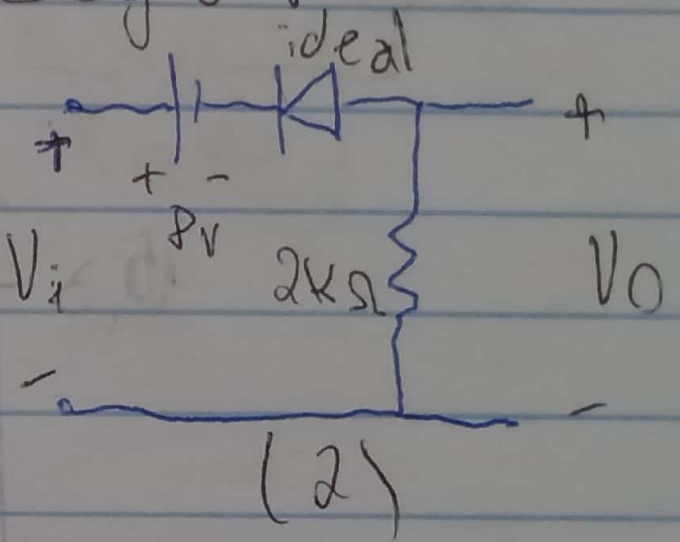 ideal
+ +
+ -
8V
Vi 2kΩ VO
- -
(2)